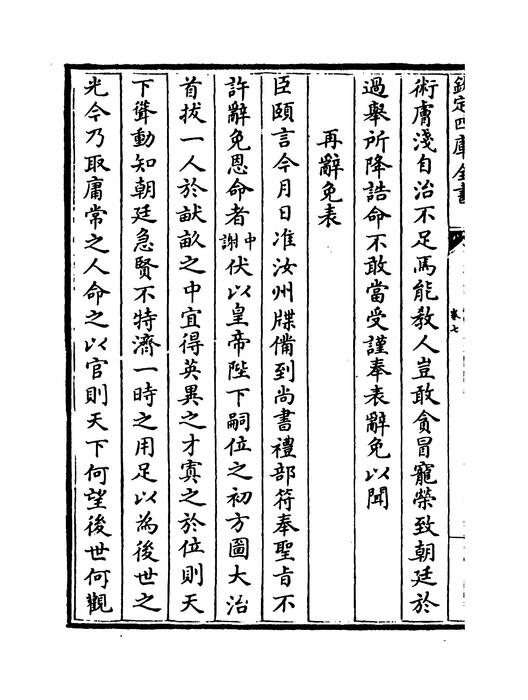 欽定四庫全書
卷七
術膚淺自治不足焉能教人豈敢貪冒寵榮致朝廷於
過舉所降誥命不敢當受謹奉表辭免以聞
再辭免表
臣頤言今月日准汝州牒備到尚書禮部符奉聖旨不
許辭免恩命者中謝伏以皇帝陛下嗣位之初方圖大治
首拔一人於畎畝之中宜得英異之才寘之於位則天
下聳動知朝廷急賢不特濟一時之用足以為後世之
光今乃取庸常之人命之以官則天下何望後世何觀